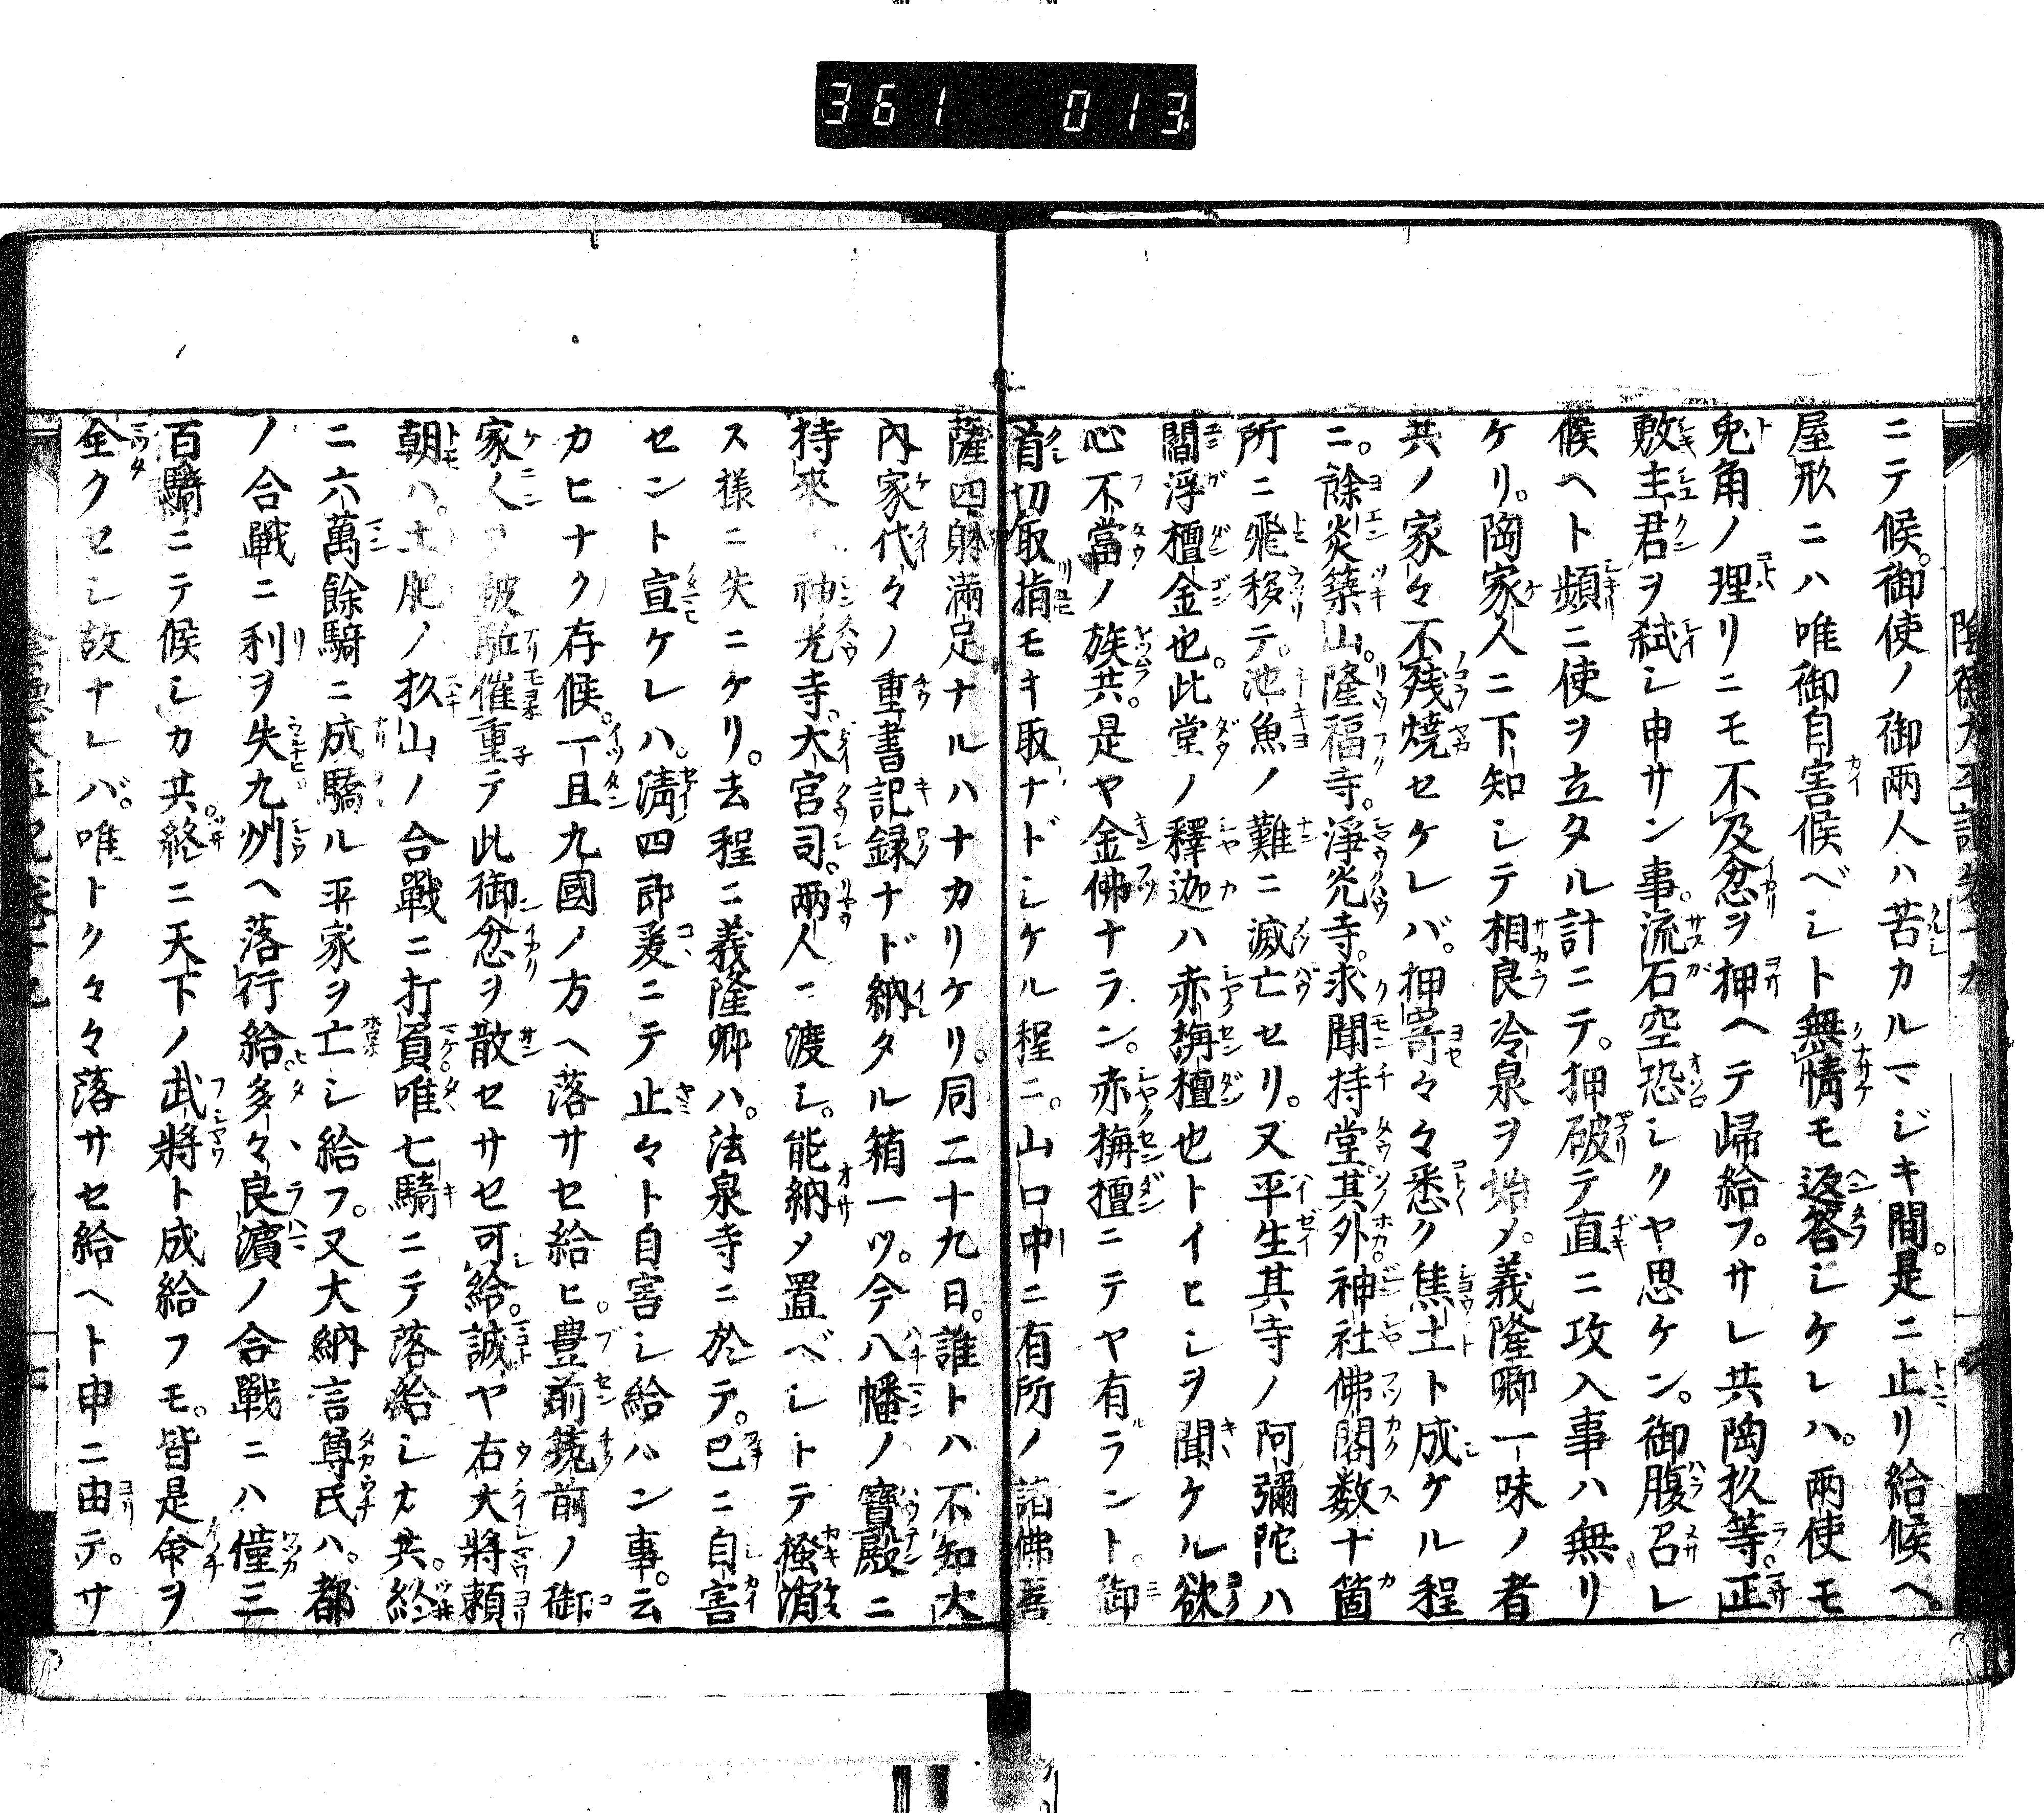 361 013
ニテ候。御使ノ御兩人ハ苦カルマジキ間。是ニ止リ給候ヘ。
屋形ニハ唯御自害候ベシト無情モ返答シケレハ。兩使モ
兎角ノ理リニモ不及忿ヲ押ヘテ歸給フ。サレ共陶杦等。正
敷主君ヲ弑シ申サン事。流石空恐シクヤ思ケン。御腹召レ
候ヘト頻ニ使ヲ立タル計ニテ。押破テ直ニ攻入事ハ無リ
ケリ。陶家人ニ下知シテ相良冷泉ヲ始メ。義隆卿一味ノ者
共ノ家々不残焼セケレバ。押寄々々悉ク焦土ト成ケル程
ニ。餘炎築山。隆福寺。淨光寺。求聞持堂。其外神社佛閣数十箇
所ニ飛移テ。池魚ノ難ニ滅亡セリ。又平生其寺ノ阿彌陀ハ
閻浮檀金也。此堂ノ釋迦ハ赤栴檀也トイヒシヲ聞ケル欲
心不當ノ族共。是ヤ金佛ナラン。赤栴檀ニテヤ有ラント。御
首切取指モキ取ナドシケル程ニ。山口中ニ有所ノ諸佛菩
薩四躰滿足ナルハナカリケリ。同二十九日。誰トハ不知大
內家代々ノ重書記録ナド納タル箱一ツ。今八幡ノ寶殿ニ
持來 神光寺。大宮司。兩人ニ渡シ。能納メ置ベシトテ掻消
ス様ニ失ニケリ。去程ニ義隆卿ハ。法泉寺ニ於テ。已ニ自害
セント宣ケレハ。淸四郎爰ニテ止々ト自害シ給ハン事。云
カヒナク存候。一旦九國ノ方ヘ落サセ給ヒ。豊前筑前ノ御
家人ヲ被駈催重テ此御忿ヲ散セサセ可給。誠ヤ右大將頼
朝ハ。土肥ノ杦山ノ合戰ニ打負唯七騎ニテ落給シカ共。終
ニ六萬餘騎ニ成驕ル平家ヲ亡シ給フ。又大納言尊氏ハ。都
ノ合戰ニ利ヲ失九州ヘ落行給。多々良濱ノ合戰ニハ僅三
百騎ニテ候シカ共。終ニ天下ノ武將ト成給フモ。皆是命ヲ
全クセシ故ナレバ。唯トク々々落サセ給ヘト申ニ由テ。サ